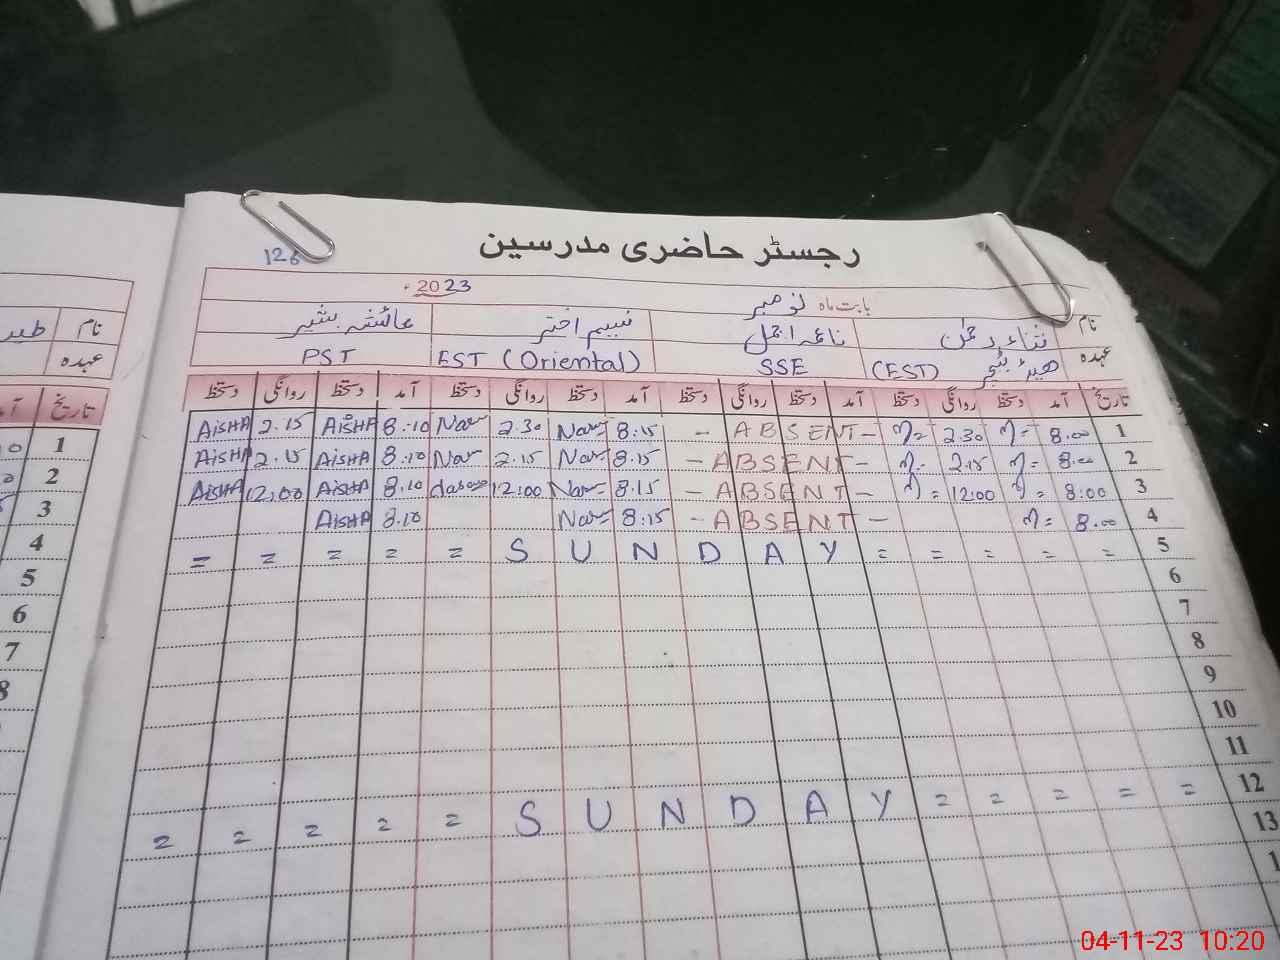 رجسٹر حاضری مدرسین
126
بابت ماہ نومبر 2023ء
نام ثناء رحمٰن ناعمہ اجمل نسیم اختر عائشہ بشیر
عہدہ ہیڈ ٹیچر (EST) SSE EST (Oriental) PST
تاریخ آمد دستخط روانگی دستخط آمد دستخط روانگی دستخط آمد دستخط روانگی دستخط آمد دستخط روانگی دستخط
1 8.00 2.30 - ABSENT - 8:15 Nar 2.30 Nar 8.10 AISHA 2.15 AISHA
2 8.00 2.15 - ABSENT - 8.15 Nar 2.15 Nar 8.10 AISHA 2.15 AISHA
3 8:00 = 12:00 - ABSENT - 8.15 Nar 12:00 8.10 AISHA 12:00 AISHA
4 8.00 - ABSENT - 8:15 Nar 8.10 AISHA
5 = = = = = S U N D A Y = = = = =
6
7
8
9
10
11
12 = = = = = S U N D A Y = = = = =
13
1
نام طیر
عہدہ
تاریخ
1
2
3
4
5
6
7
8
04-11-23 10:20